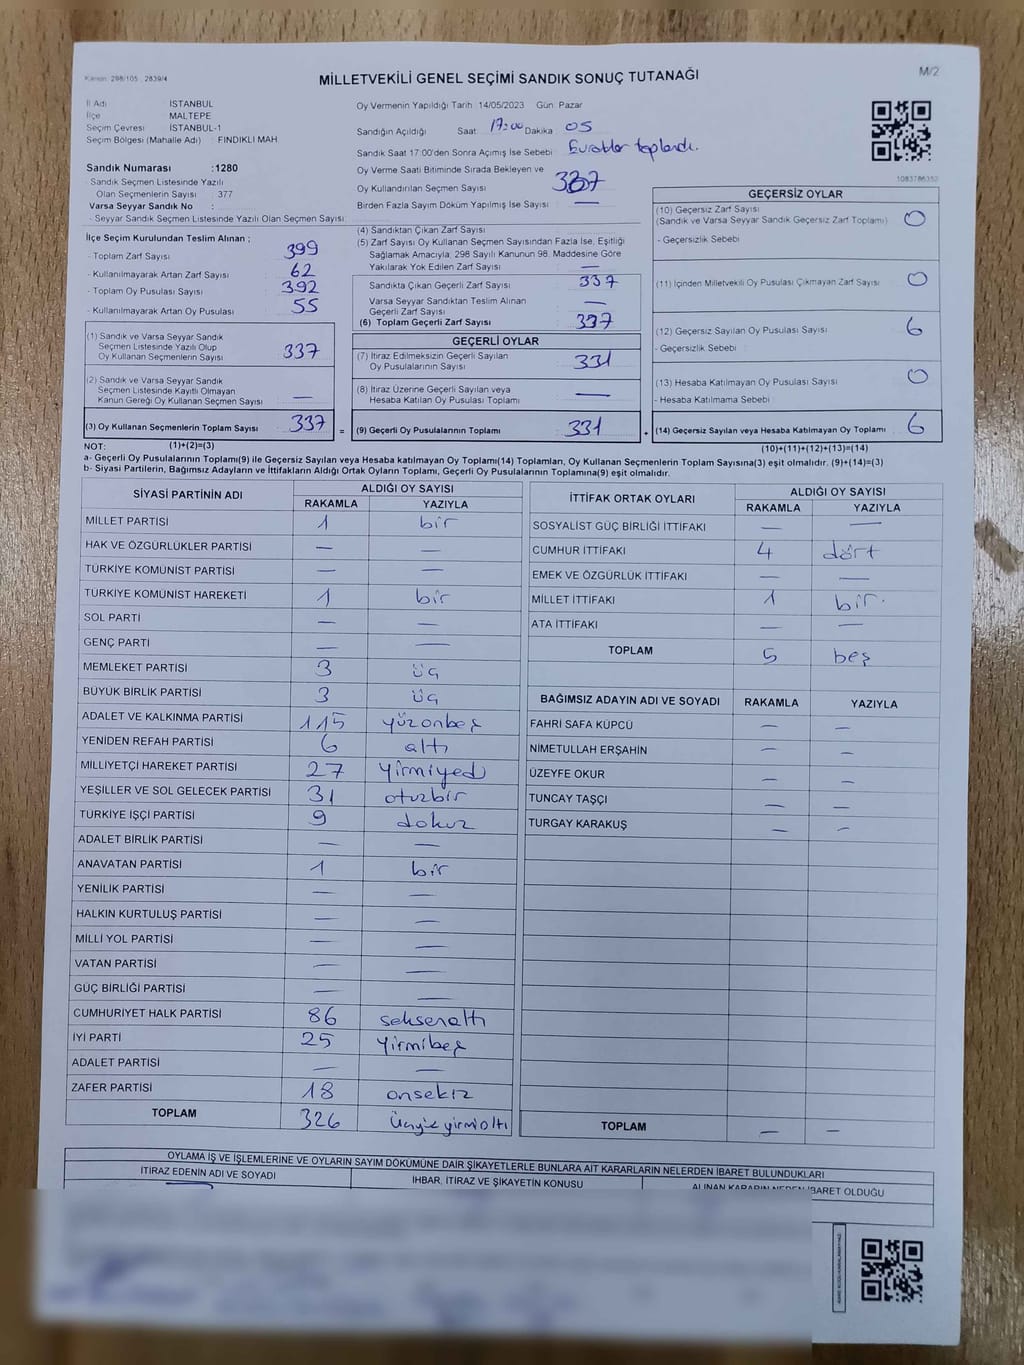 Kanun: 298/105 , 2839/4
M/2
MİLLETVEKİLİ GENEL SEÇİMİ SANDIK SONUÇ TUTANAĞI
İl Adı İSTANBUL
İlçe MALTEPE
Seçim Çevresi İSTANBUL-1
Seçim Bölgesi (Mahalle Adı) : FINDIKLI MAH
Sandık Numarası :1280
- Sandık Seçmen Listesinde Yazılı
Olan Seçmenlerin Sayısı : 377
Varsa Seyyar Sandık No :
- Seyyar Sandık Seçmen Listesinde Yazılı Olan Seçmen Sayısı:
Oy Vermenin Yapıldığı Tarih : 14/05/2023 Gün: Pazar
Sandığın Açıldığı Saat 17:00 Dakika : 05
Sandık Saat 17:00'den Sonra Açımış İse Sebebi : Evraklar toplandı.
Oy Verme Saati Bitiminde Sırada Bekleyen ve
Oy Kullandırılan Seçmen Sayısı : 337
Birden Fazla Sayım Döküm Yapılmış İse Sayısı : —
1083786352
İlçe Seçim Kurulundan Teslim Alınan ;
- Toplam Zarf Sayısı : 399
- Kullanılmayarak Artan Zarf Sayısı : 62
- Toplam Oy Pusulası Sayısı : 392
- Kullanılmayarak Artan Oy Pusulası : 55
(1) Sandık ve Varsa Seyyar Sandık
Seçmen Listesinde Yazılı Olup
Oy Kullanan Seçmenlerin Sayısı : 337
(2) Sandık ve Varsa Seyyar Sandık
Seçmen Listesinde Kayıtlı Olmayan
Kanun Gereği Oy Kullanan Seçmen Sayısı : —
(3) Oy Kullanan Seçmenlerin Toplam Sayısı : 337 =
(4) Sandıktan Çıkan Zarf Sayısı :
(5) Zarf Sayısı Oy Kullanan Seçmen Sayısından Fazla İse, Eşitliği
Sağlamak Amacıyla; 298 Sayılı Kanunun 98. Maddesine Göre
Yakılarak Yok Edilen Zarf Sayısı : —
Sandıkta Çıkan Geçerli Zarf Sayısı : 337
Varsa Seyyar Sandıktan Teslim Alınan
Geçerli Zarf Sayısı : —
(6) Toplam Geçerli Zarf Sayısı : 337
GEÇERLİ OYLAR
(7) İtiraz Edilmeksizin Geçerli Sayılan
Oy Pusulalarının Sayısı : 331
(8) İtiraz Üzerine Geçerli Sayılan veya
Hesaba Katılan Oy Pusulası Toplamı : —
(9) Geçerli Oy Pusulalarının Toplamı : 331 +
GEÇERSİZ OYLAR
(10) Geçersiz Zarf Sayısı
(Sandık ve Varsa Seyyar Sandık Geçersiz Zarf Toplamı) : 0
- Geçersizlik Sebebi :
(11) İçinden Milletvekili Oy Pusulası Çıkmayan Zarf Sayısı : 0
(12) Geçersiz Sayılan Oy Pusulası Sayısı : 6
- Geçersizlik Sebebi :
(13) Hesaba Katılmayan Oy Pusulası Sayısı : 0
- Hesaba Katılmama Sebebi :
(14) Geçersiz Sayılan veya Hesaba Katılmayan Oy Toplamı : 6
NOT: (1)+(2)=(3) (10)+(11)+(12)+(13)=(14)
a- Geçerli Oy Pusulalarının Toplamı(9) ile Geçersiz Sayılan veya Hesaba katılmayan Oy Toplamı(14) Toplamları, Oy Kullanan Seçmenlerin Toplam Sayısına(3) eşit olmalıdır. (9)+(14)=(3)
b- Siyasi Partilerin, Bağımsız Adayların ve İttifakların Aldığı Ortak Oyların Toplamı, Geçerli Oy Pusulalarının Toplamına(9) eşit olmalıdır.
SİYASİ PARTİNİN ADI ALDIĞI OY SAYISI
RAKAMLA YAZIYLA
MİLLET PARTİSİ 1 bir
HAK VE ÖZGÜRLÜKLER PARTİSİ — —
TÜRKİYE KOMÜNİST PARTİSİ — —
TÜRKİYE KOMÜNİST HAREKETİ 1 bir
SOL PARTİ — —
GENÇ PARTİ — —
MEMLEKET PARTİSİ 3 üç
BÜYÜK BİRLİK PARTİSİ 3 üç
ADALET VE KALKINMA PARTİSİ 115 yüzonbeş
YENİDEN REFAH PARTİSİ 6 altı
MİLLİYETÇİ HAREKET PARTİSİ 27 yirmiyedi
YEŞİLLER VE SOL GELECEK PARTİSİ 31 otuzbir
TÜRKİYE İŞÇİ PARTİSİ 9 dokuz
ADALET BİRLİK PARTİSİ — —
ANAVATAN PARTİSİ 1 bir
YENİLİK PARTİSİ — —
HALKIN KURTULUŞ PARTİSİ — —
MİLLİ YOL PARTİSİ — —
VATAN PARTİSİ — —
GÜÇ BİRLİĞİ PARTİSİ — —
CUMHURİYET HALK PARTİSİ 86 seksenaltı
İYİ PARTİ 25 yirmibeş
ADALET PARTİSİ — —
ZAFER PARTİSİ 18 onsekiz
TOPLAM 326 üçyüzyirmialtı
İTTİFAK ORTAK OYLARI ALDIĞI OY SAYISI
RAKAMLA YAZIYLA
SOSYALİST GÜÇ BİRLİĞİ İTTİFAKI — —
CUMHUR İTTİFAKI 4 dört
EMEK VE ÖZGÜRLÜK İTTİFAKI — —
MİLLET İTTİFAKI 1 bir.
ATA İTTİFAKI — —
TOPLAM 5 beş
BAĞIMSIZ ADAYIN ADI VE SOYADI RAKAMLA YAZIYLA
FAHRİ SAFA KÜPCÜ — —
NİMETULLAH ERŞAHİN — —
ÜZEYFE OKUR — —
TUNCAY TAŞÇI — —
TURGAY KARAKUŞ — —
TOPLAM — —
OYLAMA İŞ VE İŞLEMLERİNE VE OYLARIN SAYIM DÖKÜMÜNE DAİR ŞİKAYETLERLE BUNLARA AİT KARARLARIN NELERDEN İBARET BULUNDUKLARI
İTİRAZ EDENİN ADI VE SOYADI İHBAR, İTİRAZ VE ŞİKAYETİN KONUSU ALINAN KARARIN NEDEN İBARET OLDUĞU